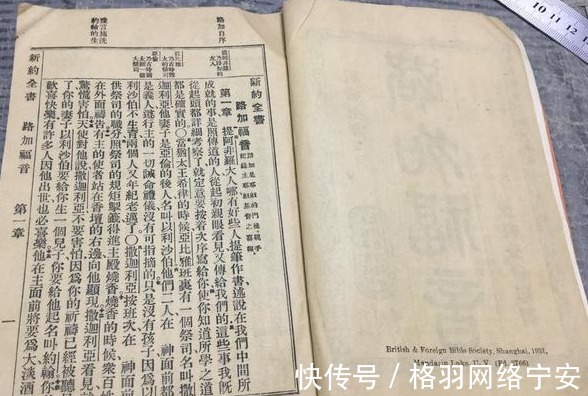 路加自序
豫言施洗
約翰的生
新約全書
路加福音
路加是耶穌的門徒親手
記錄主耶穌基督之喜報
第一章 提阿非羅大人哪有好些人提筆作書述說在我們中間所
成就的事是照傳道的人從起初親眼看見又傳給我們的這些事我既
從起頭都詳細考察了就定意要按着次序寫給你使你知道所學之道
都是確實的○當猶太王希律的時候亞比雅班裏有一個祭司名叫撒
迦利亞他妻子是亞倫的後人名叫以利沙伯他們二人在 神面前都
是義人遵行主的一切誡命禮儀沒有可指摘的只是沒有孩子因爲以
利沙伯不生育兩個人又年紀老邁了○撒迦利亞按班次在 神面前
供祭司的職分照祭司的規矩掣籤得進主殿燒香燒香的時候衆百姓
在外面禱告有主的使者站在香壇的右邊向他顯現撒迦利亞看見就
驚慌害怕天使對他說撒迦利亞不要害怕因爲你的祈禱已經被聽
了你的妻子以利沙伯要給你生一個兒子你要給他起名叫約翰你
歡喜快樂有許多人因他出世也必喜樂他在主面前將要爲大淡酒
新約全書 路加福音 第一章 一
British & Foreign Bible Society, Shanghai, 1931.
Mandarin Luke, U. V. (Ed. 2766)
8 9 10 11
快传号 / 格羽网络宁安